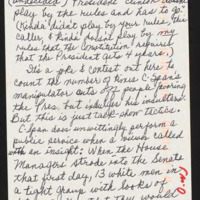 (unseceded) President Clinton
play by the rules and has to go."
(Linda didn't play by your rules, this
caller & Linda doesn't play by my
rules that the Constitution required
that the President gets 4 years.)
It's a gold & contest out here to
count the number of times C-Span's
manipulators cuts off people supporting
the Pres. but indulges his insulters.
But this is just talk-show tactics.
C-Span does unwittingly perform a
public service when a viewer called
with an insight: When the House
Managers strode into the Senate
that first day, 13 white men in
a tight group with looks of